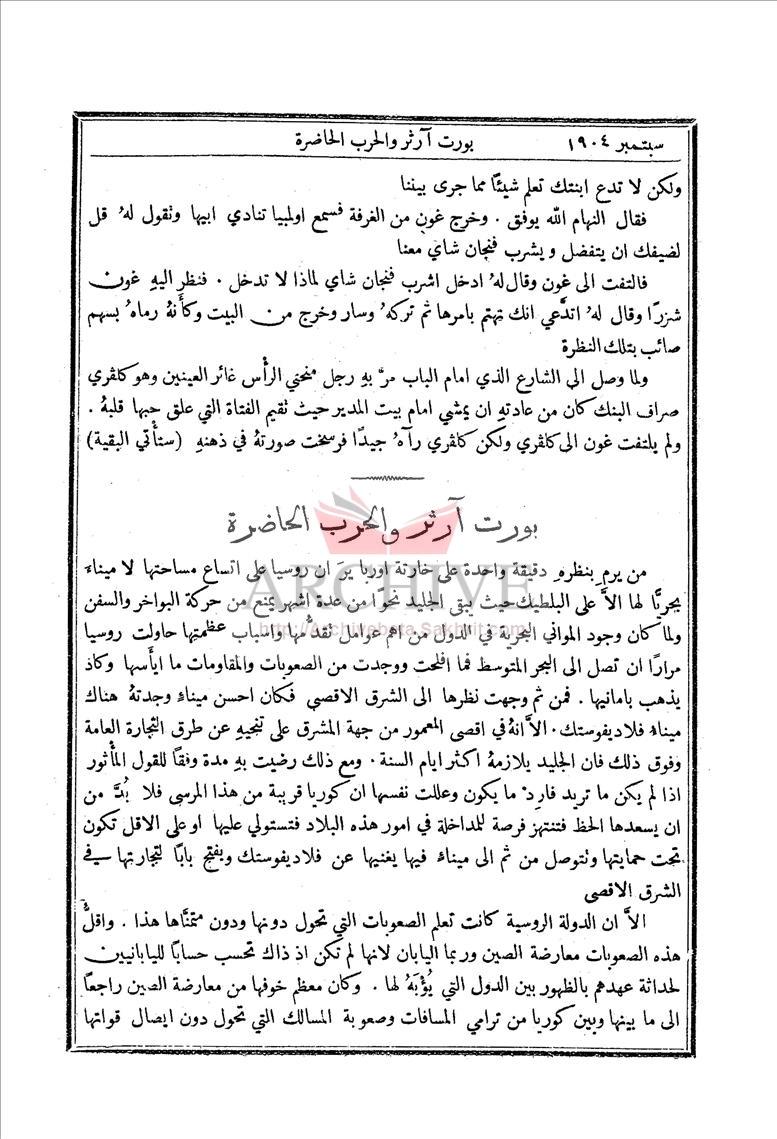 سبتمبر ١٩٠٤ بورت آرثر والحرب الحاضرة
ولكن لا تدع ابنتك تعلم شيئًا مما جرى بيننا
فقال النهام الله يوفق . وخرج غون من الغرفة فسمع اولمبيا تنادي ابيها وتقول لهُ قل
لضيفك ان يتفضل ويشرب فنجان شاي معنا
فالتفت الى غون وقال لهُ ادخل اشرب فنجان شاي لماذا لا تدخل . فنظر اليهِ غون
شزرًا وقال لهُ اتدَّعي انك تهتم بامرها ثم تركهُ وسار وخرج من البيت وكأنهُ رماه بسهم
صائب بتلك النظرة
ولما وصل الى الشارع الذي امام الباب مرَّ بهِ رجل منحني الرأس غائر العينين وهو كلڤري
صراف البنك كان من عادتهِ ان يمشي امام بيت المدير حيث تقيم الفتاة التي علق حبها قلبهُ .
ولم يلتفت غون الى كالڤري ولكن كالڤري رآه جيدًا فرسخت صورتهُ في ذهنهِ (ستأتي البقية)
بورت آرثر والحرب الحاضرة
ARCHIVE
http://Archivebeta.Sakhrit.com
من يرمِ بنظرهِ دقيقة واحدة على خارتة اوربا يرَ ان روسيا على اتساع مساحتها لا ميناء
بحريًّا لها الاَّ على البلطيك حيث يبقى الجليد نحوًا من عدة اشهر يمنع من حركة البواخر والسفن
ولما كان وجود المواني البحرية في الدول من اهم عوامل تقدُّمها واسباب عظمتها حاولت روسيا
مرارًا ان تصل الى البحر المتوسط فما افلحت ووجدت من الصعوبات والمقاومات ما ايأسها وكاد
يذهب بامانيها . فمن ثم وجهت نظرها الى الشرق الاقصى فكان احسن ميناءٍ وجدتهُ هناك
ميناء فلاديفوستك . الاَّ انهُ في اقصى المعمور من جهة المشرق على تنحيهِ عن طرق التجارة العامة
وفوق ذلك فان الجليد يلازمهُ اكثر ايام السنة . ومع ذلك رضيت بهِ مدة وفقًا للقول المأثور
اذا لم يكن ما تريد فارِد ما يكون وعللت نفسها ان كوريا قريبة من هذا المرسى فلا بُدَّ من
ان يسعدها الحظ فتنتهز فرصة للمداخلة في امور هذه البلاد فتستولي عليها او على الاقل تكون
تحت حمايتها وتتوصل من ثم الى ميناء فيها يغنيها عن فلاديفوستك ويفتح بابًا لتجارتها في
الشرق الاقصى
الاَّ ان الدولة الروسية كانت تعلم الصعوبات التي تحول دونها ودون متمنَّاها هذا . واقلُّ
هذه الصعوبات معارضة الصين وربما اليابان لانها لم تكن اذ ذاك تحسب حسابًا لليابانيين
لحداثة عهدهم بالظهور بين الدول التي يُؤْبَهُ لها . وكان معظم خوفها من معارضة الصين راجعًا
الى ما بينها وبين كوريا من ترامي المسافات وصعوبة المسالك التي تحول دون ايصال قواتها